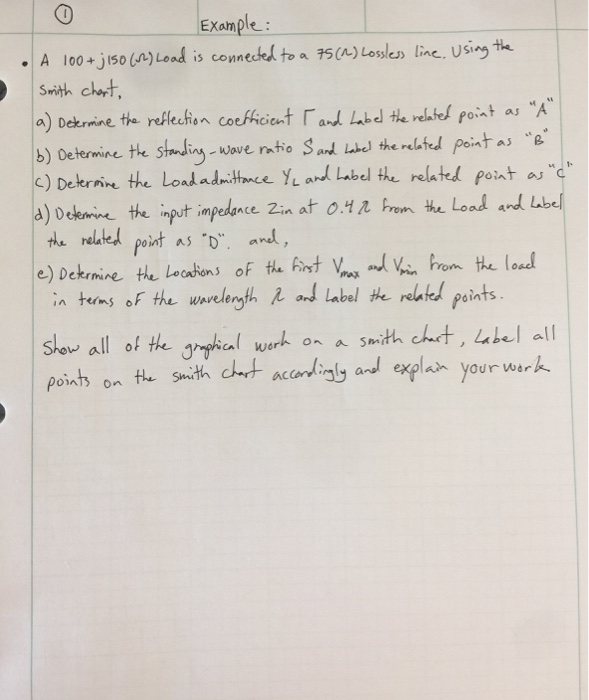 ①
Example:
• A 100+j150(Ω) Load is connected to a 75(Ω) Lossless line. Using the
Smith chart,
a) Determine the reflection coefficient Γ and Label the related point as "A"
b) Determine the Standing-wave ratio S and Label the related point as "B"
c) Determine the Load admittance YL and Label the related point as "C".
d) Determine the input impedance Zin at 0.4 λ from the Load and Label
the related point as "D". and,
e) Determine the Locations of the first Vmax and Vmin from the load
in terms of the wavelength λ and Label the related points.
Show all of the graphical work on a smith chart, Label all
points on the smith chart accordingly and explain your work